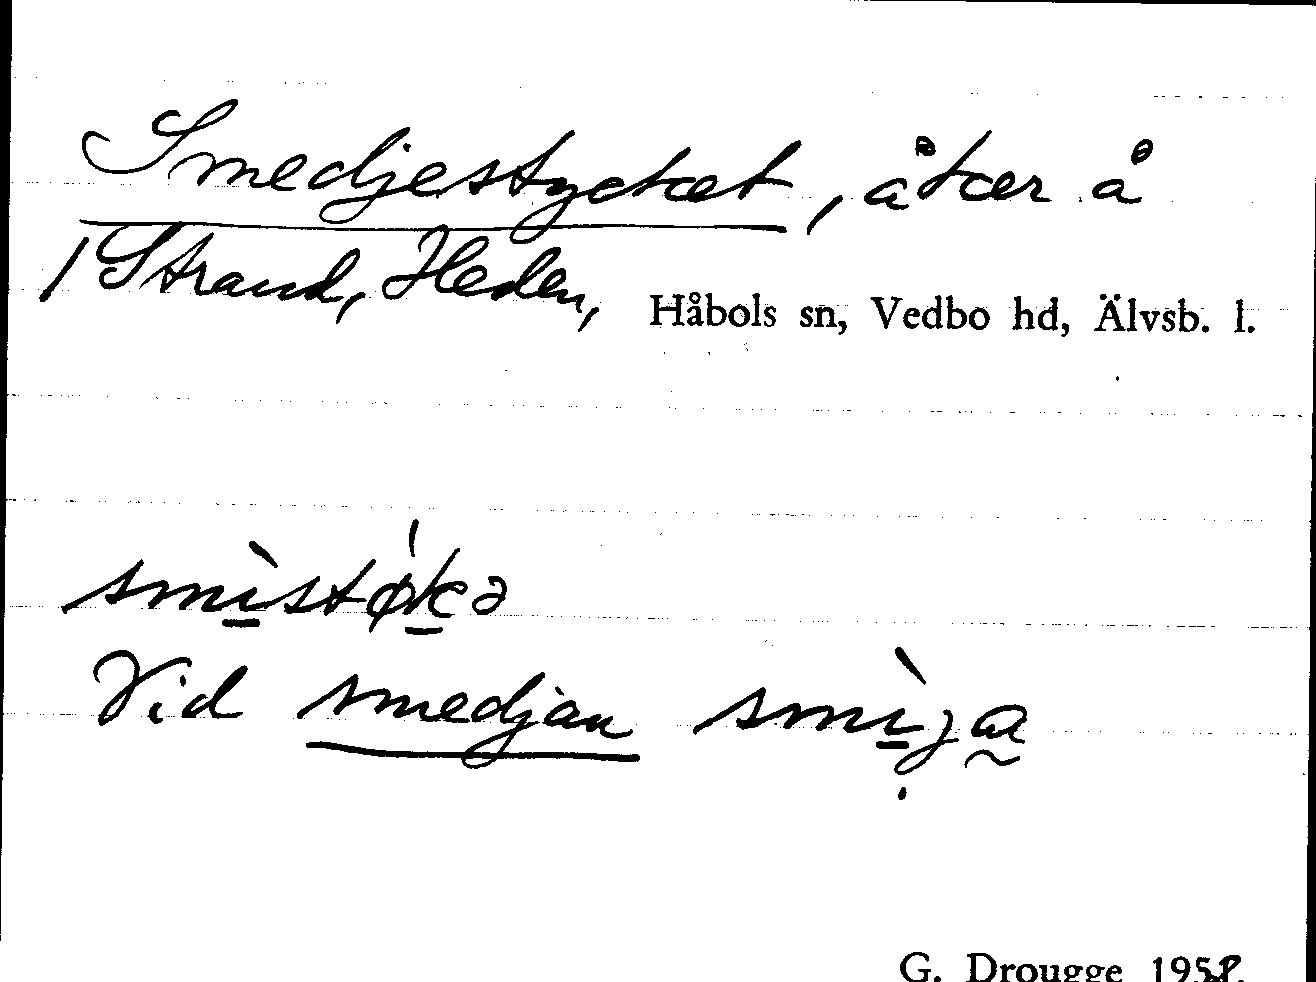 Smedjestycket, åker å
/ Strand, Heden, Håbols sn, Vedbo hd, Älvsb. l.
smì̠stø̍k̠ə
Vid smedjan smì̠ja̰
G. Drougge 1958.